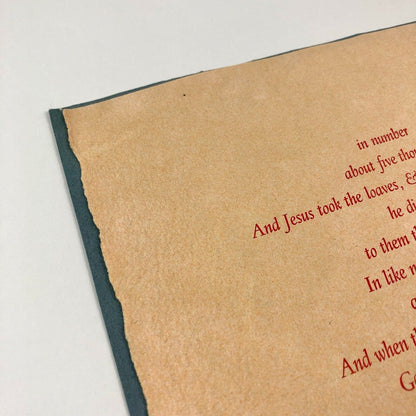 in number
about five
And Jesus took the loaves, &
he
to them
In like
And when